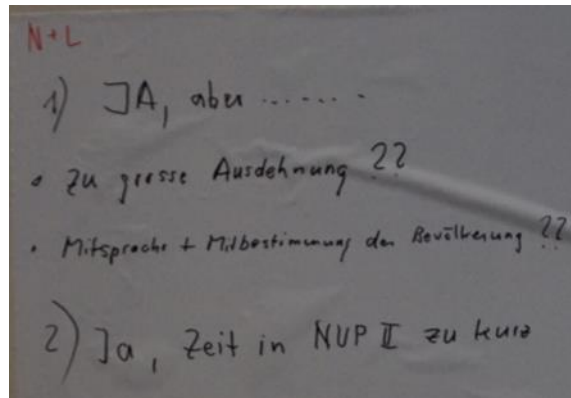 N+L
1) JA, aber .......
• zu grosse Ausdehnung ??
• Mitsprache + Mitbestimmung der Bevölkerung ??
2) Ja, Zeit in NUP II zu kurz